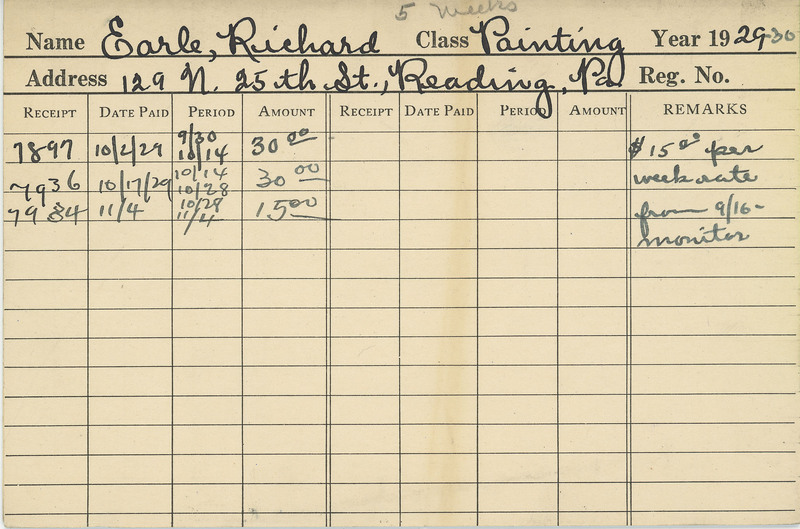 5 weeks
Name Earle, Richard Class Painting Year 1929-30
Address 129 N. 25th St., Reading, Pa. Reg. No.
RECEIPT DATE PAID PERIOD AMOUNT RECEIPT DATE PAID PERIOD AMOUNT REMARKS
7897 10/2/29 9/30 10/14 30 00 $15 00 per
7936 10/17/29 10/14 10/28 30 00 week rate
7984 11/4 10/28 11/4 15 00 from 9/16-
monitor